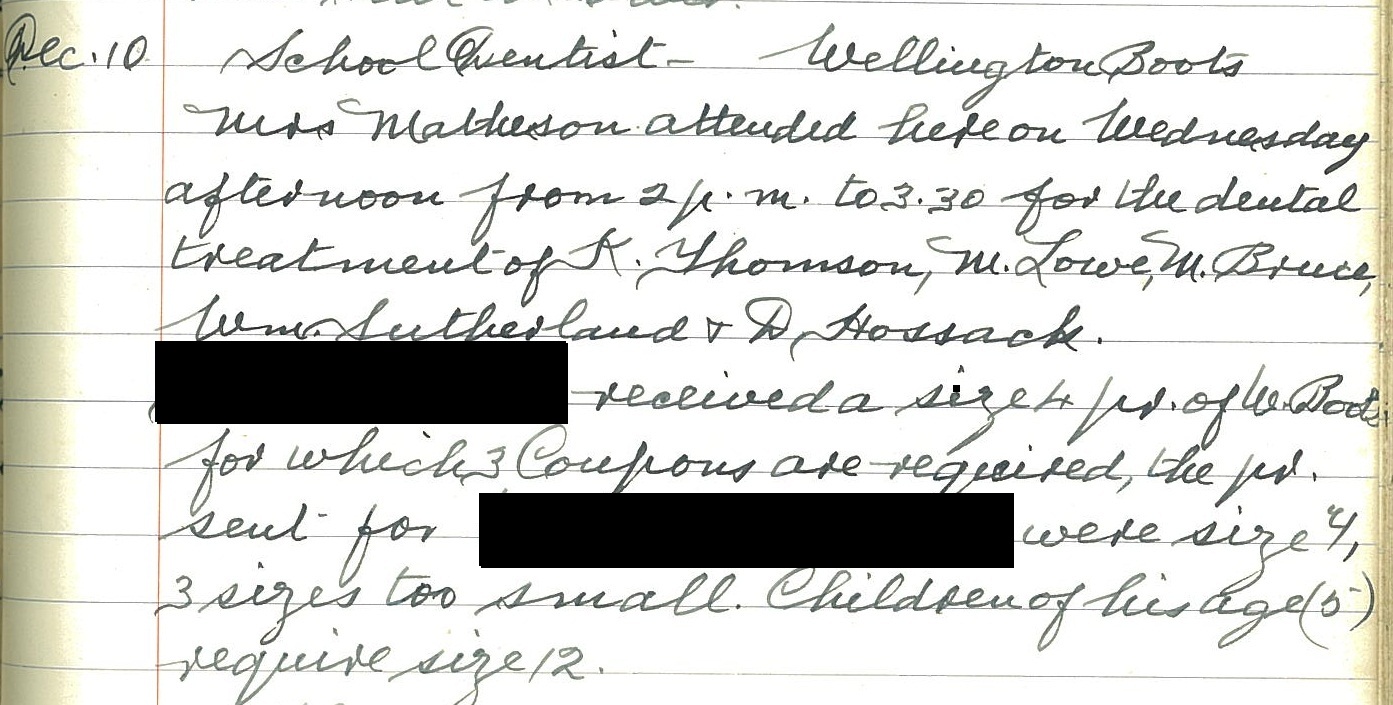 Dec. 10 School Dentist - Wellington Boots
Mrs Matheson attended here on Wednesday
afternoon from 2 p.m. to 3.30 for the dental
treatment of K. Thomson, M. Lowe, M. Bruce,
Wm. Sutherland & D. Hossack.
received a size 4 pr. of W. Boots
for which 3 Coupons are required, the pr.
sent for were size
3 sizes too small. Children of his age (5)
require size 12.